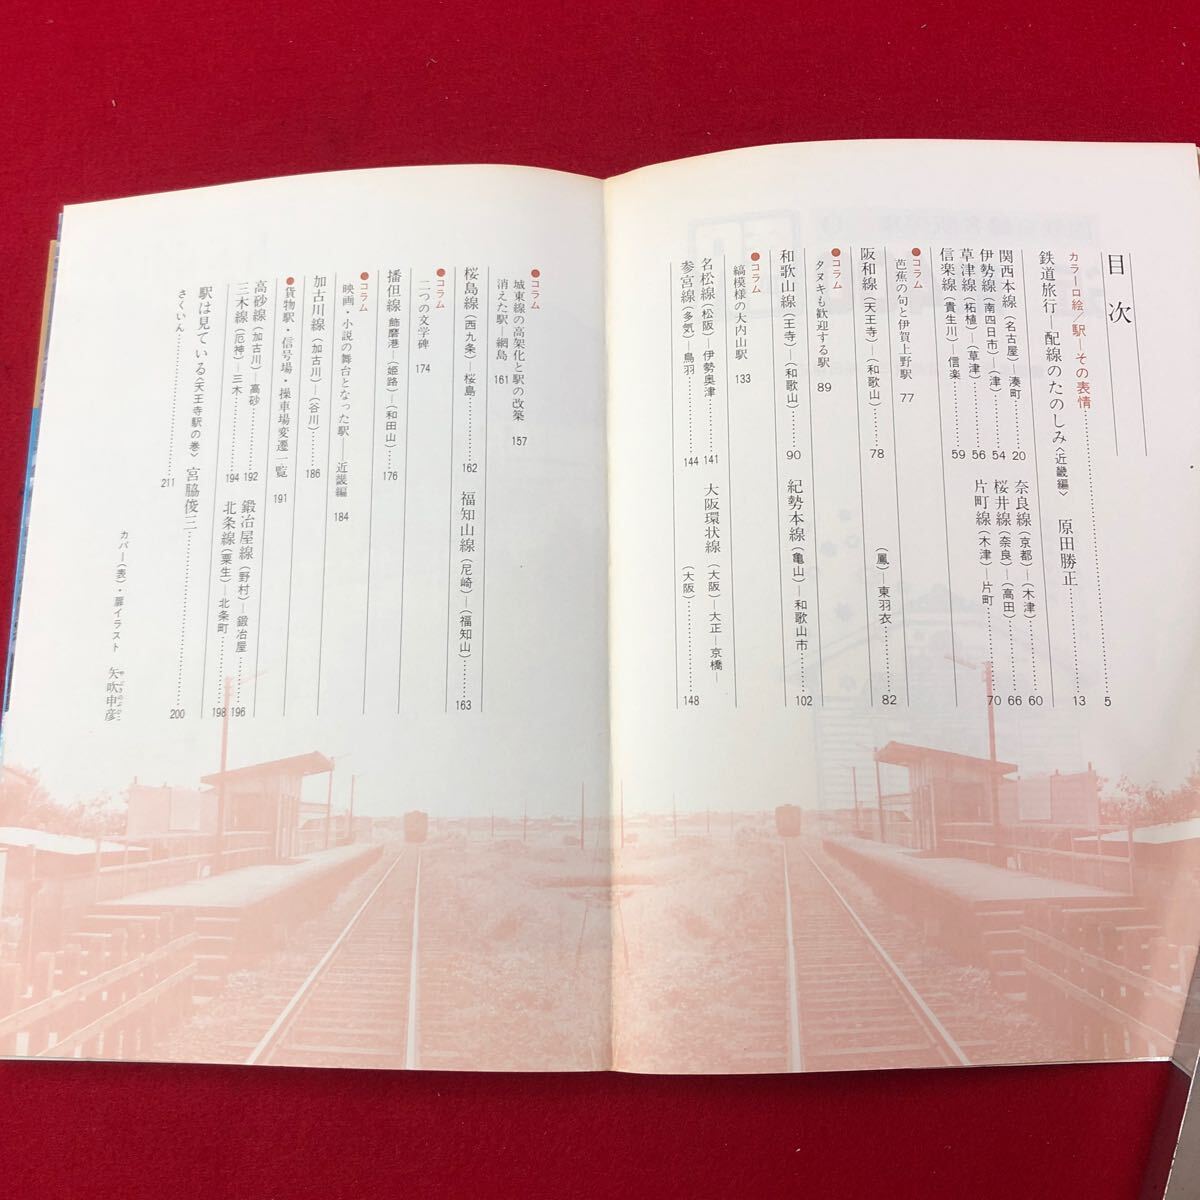 目次
カラー口絵／駅―その表情……5
鉄道旅行―配線のたのしみ〈近畿編〉　原田勝正……13
関西本線（名古屋）―湊町……20
奈良線（京都）―（木津）……60
伊勢線（南四日市）―（津）……54
桜井線（奈良）―（高田）……66
草津線（柘植）―（草津）……56
片町線（木津）―片町……70
信楽線（貴生川）―信楽……59
●コラム
芭蕉の句と伊賀上野駅　77
阪和線（天王寺）―（和歌山）……78
（鳳）―東羽衣……82
●コラム
タヌキも歓迎する駅　89
和歌山線（王寺）―（和歌山）……90
紀勢本線（亀山）―和歌山市……102
●コラム
縞模様の大内山駅　133
名松線（松阪）―伊勢奥津……141
大阪環状線（大阪）―大正―京橋―
参宮線（多気）―鳥羽……144
（大阪）……148
●コラム
城東線の高架化と駅の改築　157
消えた駅―網島　161
桜島線（西九条）―桜島……162
福知山線（尼崎）―（福知山）……163
●コラム
二つの文学碑　174
播但線　飾磨港―（姫路）―（和田山）……176
●コラム
映画・小説の舞台となった駅――近畿編　184
加古川線（加古川）―（谷川）……186
●貨物駅・信号場・操車場変遷一覧　191
高砂線（加古川）―高砂……192
鍛冶屋線（野村）―鍛冶屋……196
三木線（厄神）―三木……194
北条線（粟生）―北条町……198
駅は見ている〈天王寺駅の巻〉　宮脇俊三……200
さくいん……211
カバー（表）・扉イラスト　矢吹申彦